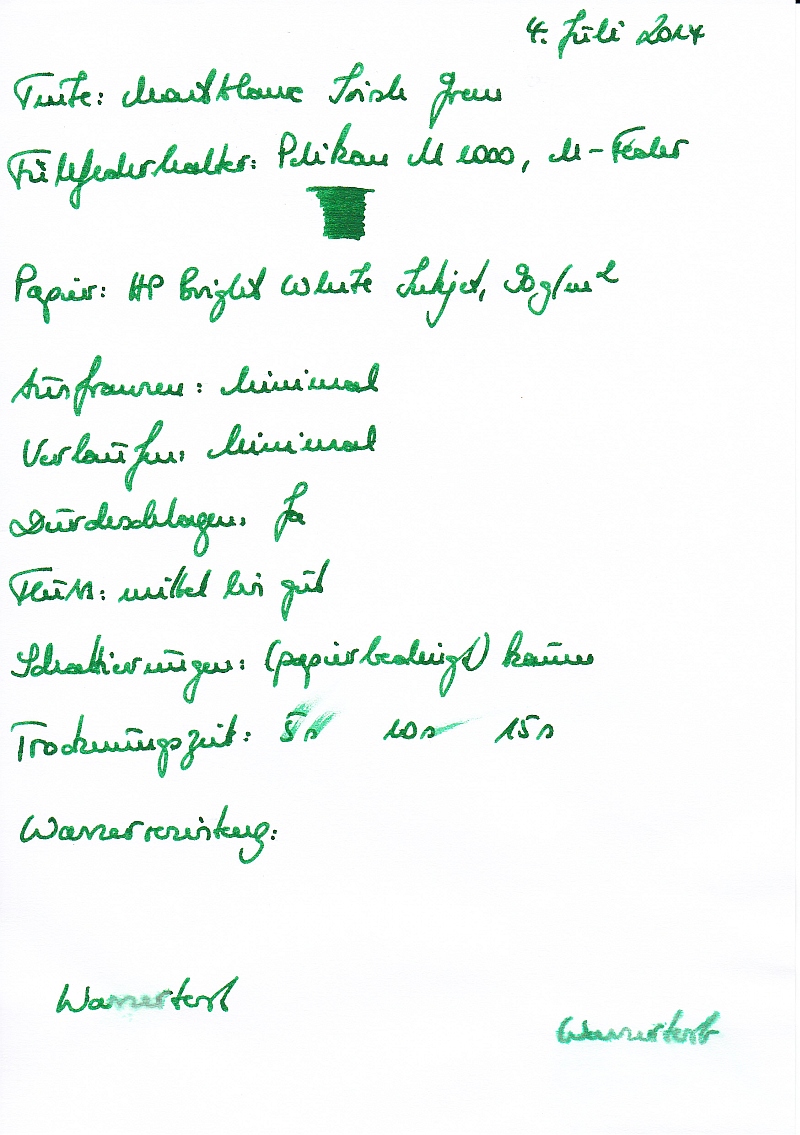 4. Juli 2014
Tinte: Montblanc Irish Green
Füllfederhalter: Pelikan M 1000, M-Feder
Papier: HP Bright White Inkjet, 90g/m²
Ausfransen: Minimal
Verlaufen: Minimal
Durchschlagen: Ja
Fluss: mittel bis gut
Schattierungen: (papierbedingt) kaum
Trocknungszeit: 5s 10s 15s
Wasserresistenz:
Wassertest
Wassertest